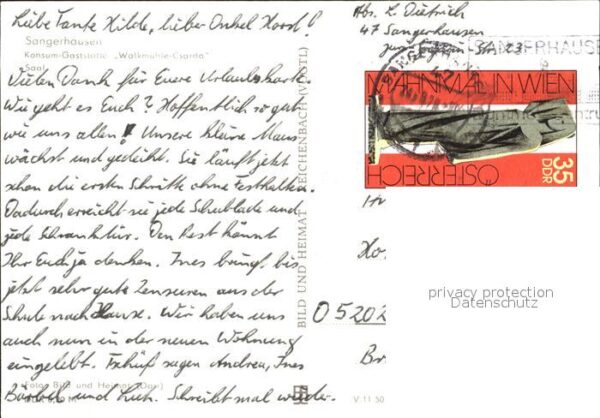 Liebe Tante Hilde, lieber Onkel Horst!
Sangerhausen
Konsum-Gaststätte „Walkmühle-Csarda"
Saal
Vielen Dank für Euere Urlaubskarte.
Wie geht es Euch? Hoffentlich so gut
wie uns allen! Unsere kleine Maus
wächst und gedeiht. Sie läuft jetzt
schon die ersten Schritte ohne Festhalten.
Dadurch erreicht sie jede Schublade und
jede Schranktür. Den Rest könnt
Ihr Euch ja denken. Ines bringt bis
jetzt sehr gute Zensuren aus der
Schule nach Hause. Wir haben uns
auch nun in der neuen Wohnung
eingelebt. Tschüß sagen Andrea, Ines
Bärbel und Lutz. Schreibt mal wieder.
Foto: Bild und Heimat
BILD UND HEIMAT REICHENBACH (VOGTL)
V 11 50
Abs. L. Dietrich
47 Sangerhausen
SANGERHAUSE
MAHNMAL IN WIEN
ÖSTERREICH
35
DDR
05202
privacy protection
Datenschutz